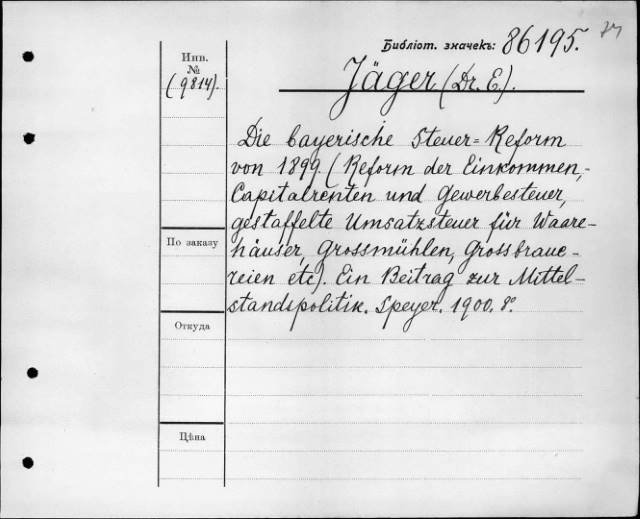 Библіот. значекъ: 86195.
Инв.
№
(9814).
Jäger (Dr. E.).
Die bayerische Steuer=Reform
von 1899. (Reform der Einkommen,-
Capitalrenten und Gewerbesteuer,
gestaffelte Umsatzsteuer für Waare-
häuser, Grossmühlen, Grossbraue-
reien etc). Ein Beitrag zur Mittel-
standspolitik. Speyer. 1900. 8°.
По заказу
Откуда
Цѣна